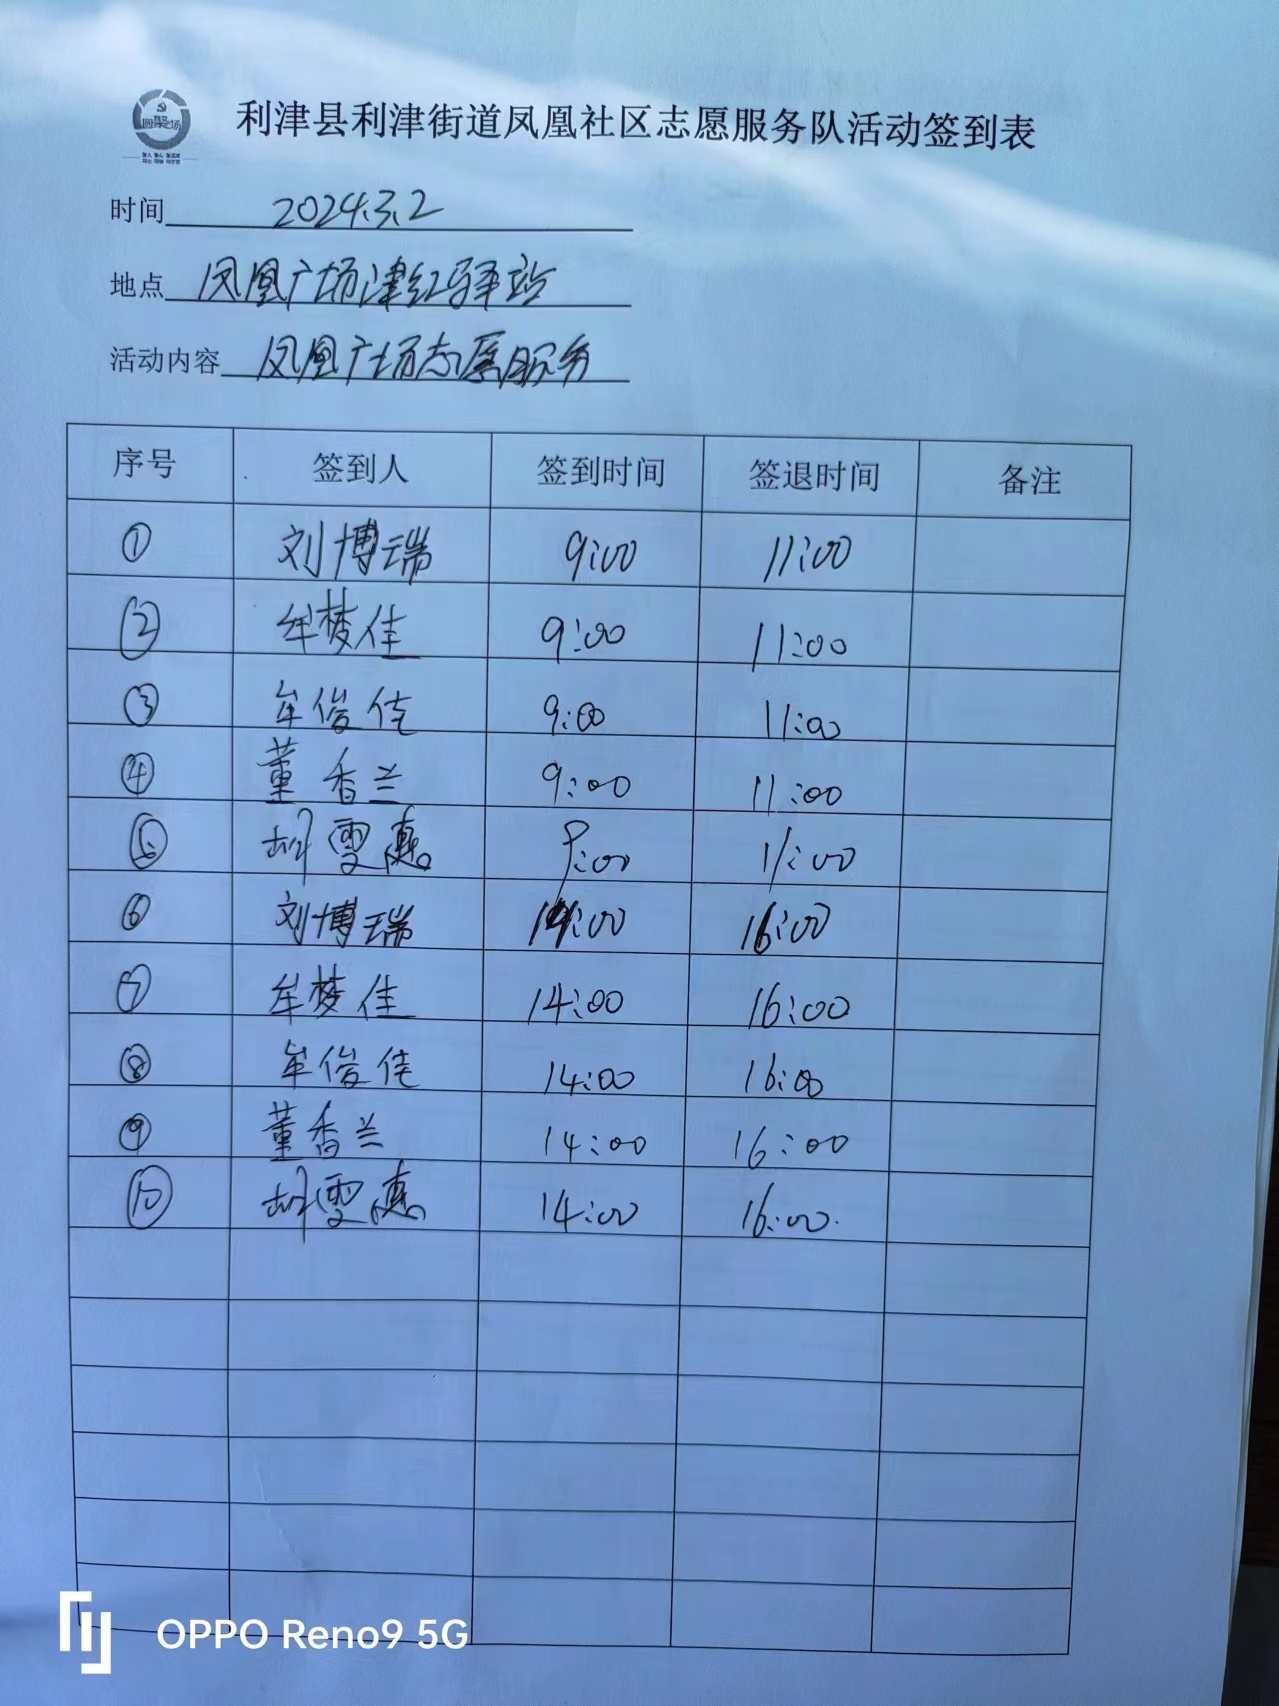 利津县利津街道凤凰社区志愿服务队活动签到表
时间 2024.3.2
地点 凤凰广场津红驿站
活动内容 凤凰广场志愿服务
序号 签到人 签到时间 签退时间 备注
① 刘博瑞 9:00 11:00
② 牟梦佳 9:00 11:00
③ 牟俊佳 9:00 11:00
④ 董香兰 9:00 11:00
⑤ 胡雯惠 9:00 11:00
⑥ 刘博瑞 14:00 16:00
⑦ 牟梦佳 14:00 16:00
⑧ 牟俊佳 14:00 16:00
⑨ 董香兰 14:00 16:00
⑩ 胡雯惠 14:00 16:00.
OPPO Reno9 5G